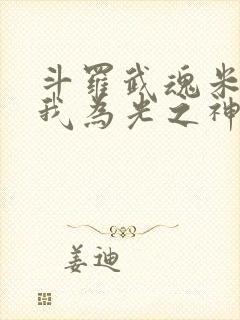 斗羅武魂米
我為光之神
姜迪